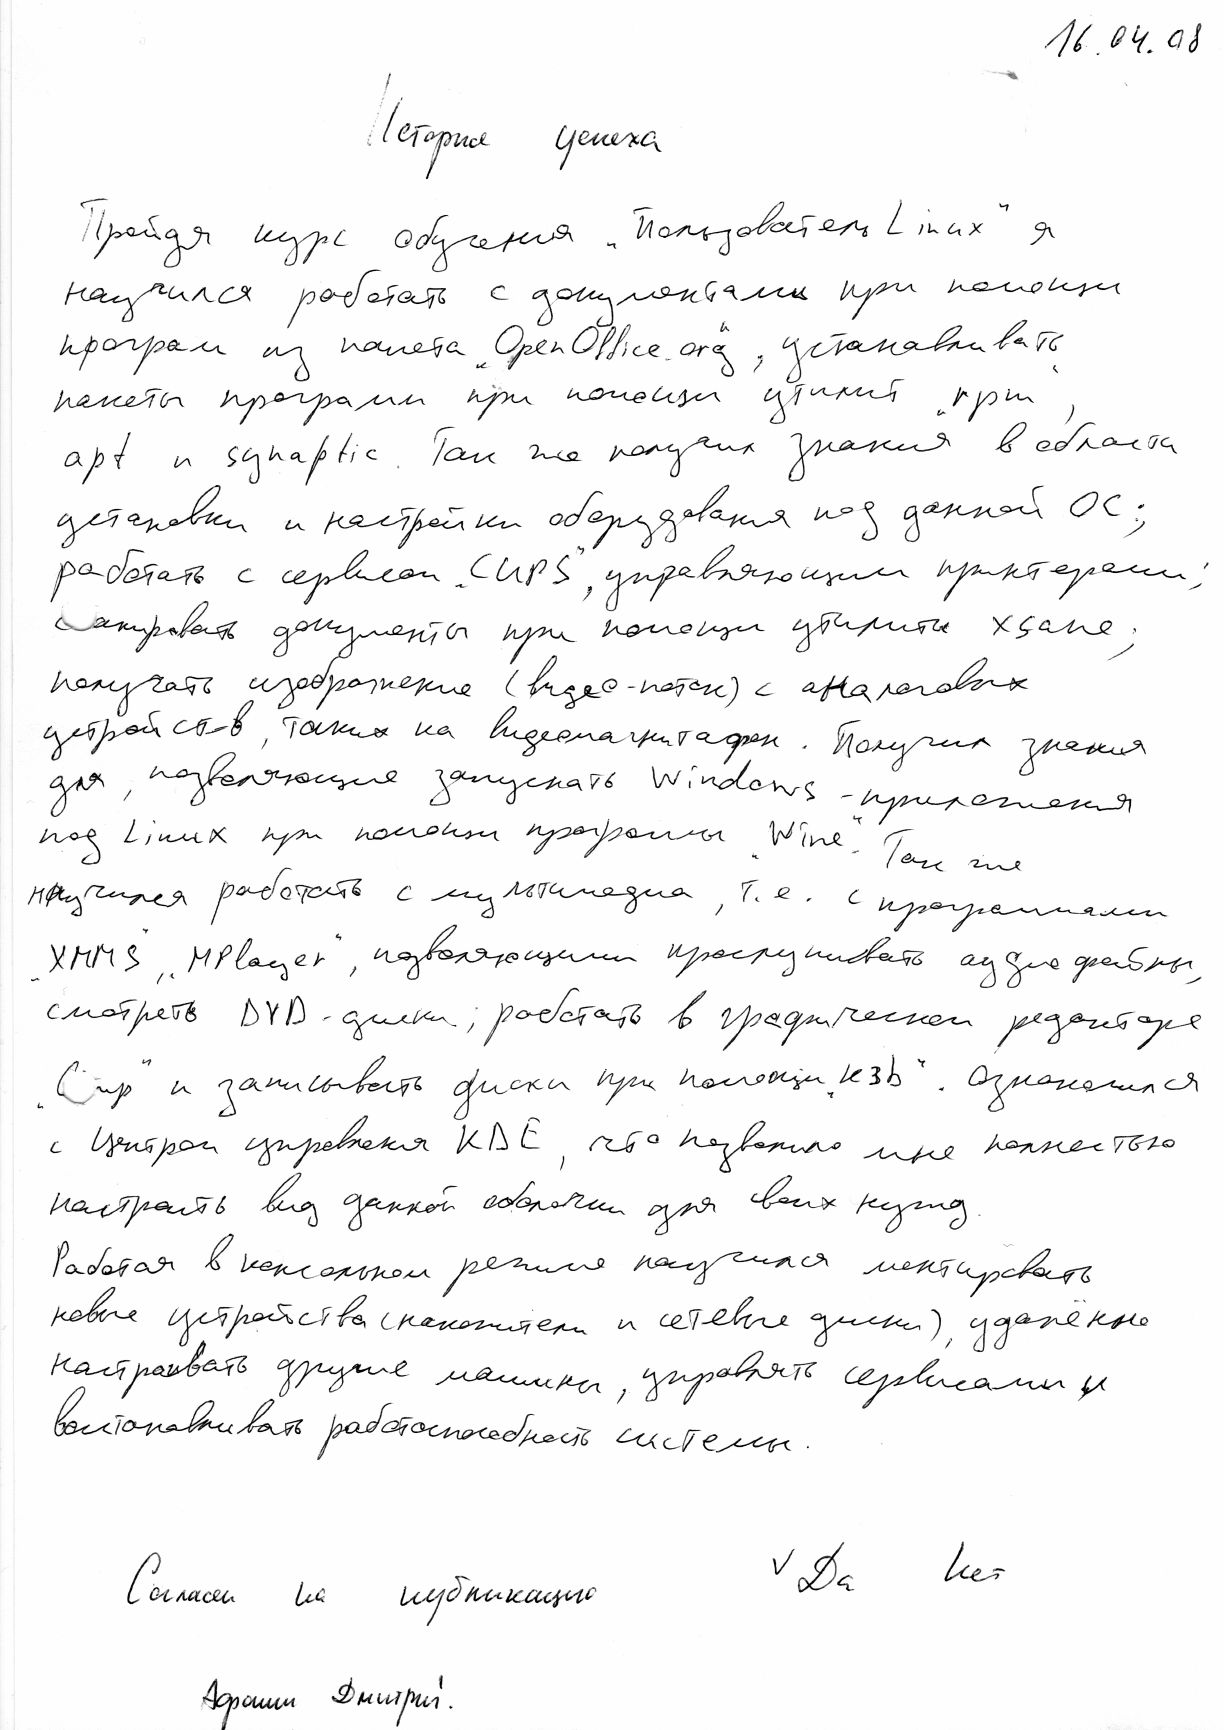 16.04.08
История успеха
Пройдя курс обучения „Пользователь Linux“ я
научился работать с документами при помощи
програм из пакета „OpenOffice.org“, устанавливать
пакеты программ при помощи утилит „rpm“,
apt и synaptic. Так же получил знания в области
установки и настройки оборудования под данной ОС;
работать с сервисом „CUPS“, управляющим принтерами;
сканировать документы при помощи утилиты xsane;
получать изображение (видео-поток) с аналоговых
устройств, таких как видеомагнитафон. Получил знания
для, позволяющие запускать Windows-приложения
под Linux при помощи программы „Wine“. Так же
научился работать с мультимедиа, т.е. с программами
„XMMS“, „MPlayer“, позволяющими прослушивать аудио файлы,
смотреть DVD-диски; работать в графическом редакторе
„Gimp“ и записывать диски при помощи „K3b“. Ознакомился
с Центром управления KDE, что позволило мне полностью
настроить вид данной оболочки для своих нужд.
Работая в консольном режиме научился монтировать
новые устройства (накопители и сетевые диски), удалённо
настраивать другие машины, управлять сервисами и
востонавливать работоспособность системы.
Согласен на публикацию V Да Нет
Дмитрий.